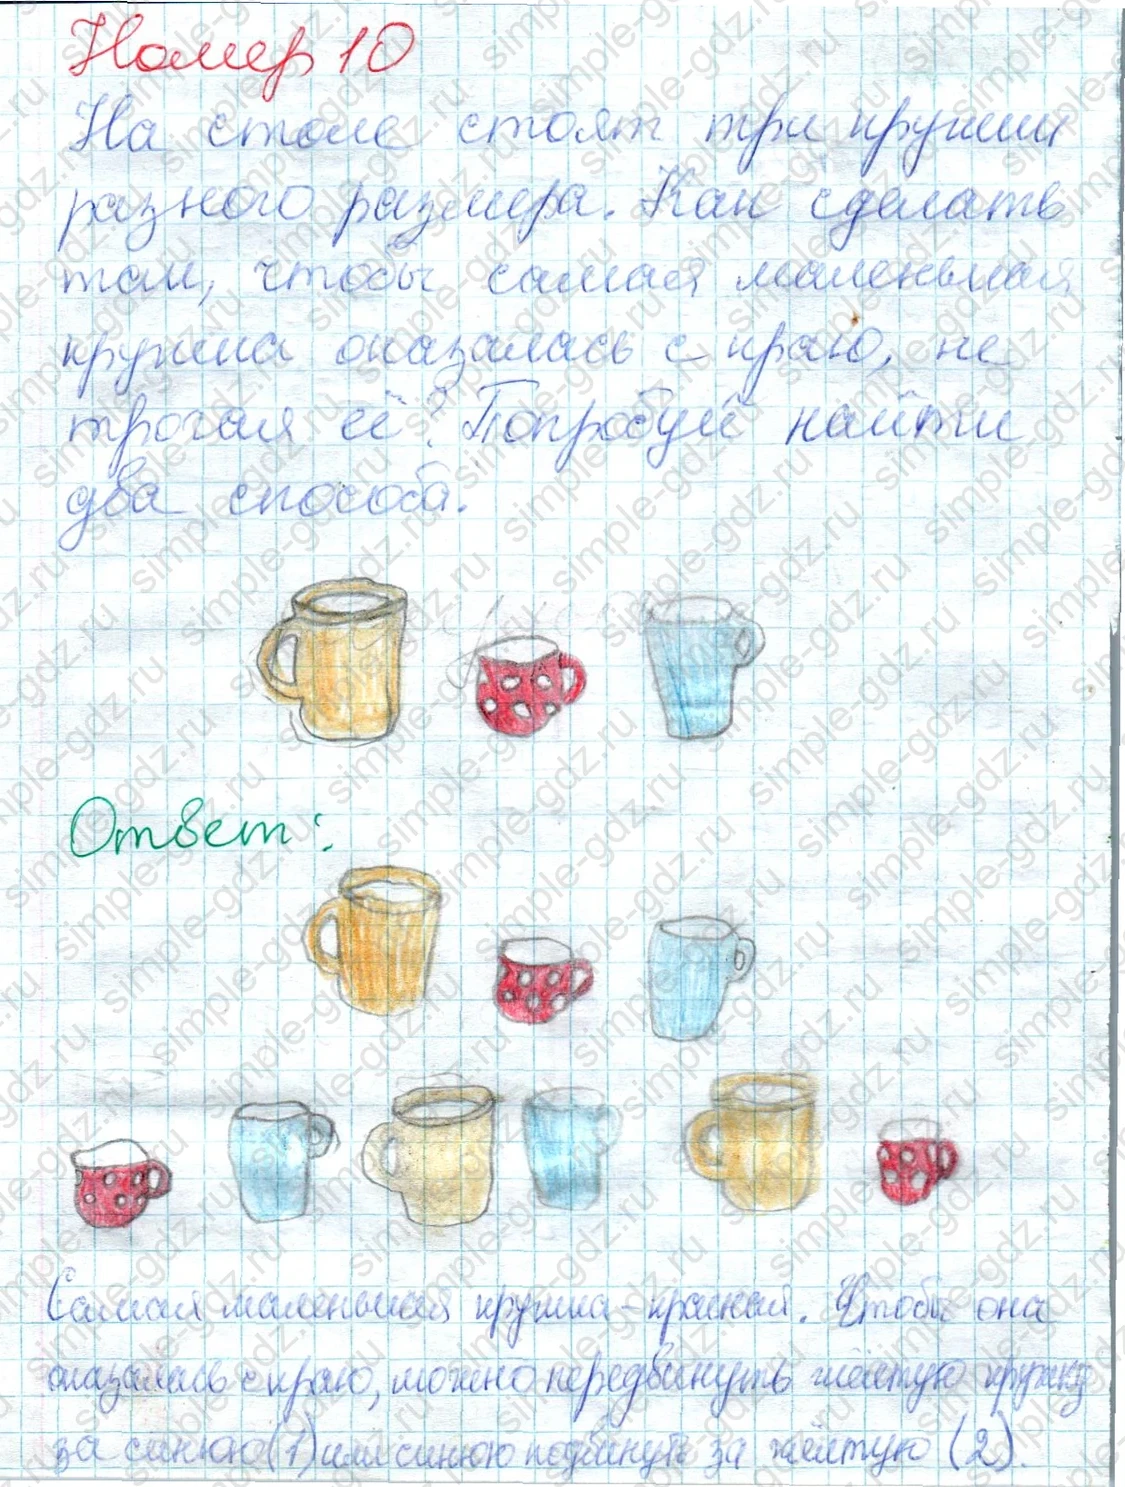 Номер 10
На столе стоят три кружки
разного размера. Как сделать
так, чтобы самая маленькая
кружка оказалась с краю, не
трогая её? Попробуй найти
два способа.
Ответ:
Самая маленькая кружка - красная. Чтобы она
оказалась с краю, можно передвинуть жёлтую кружку
за синюю (1) или синюю подвинуть за жёлтую (2).
simple-gdz.ru